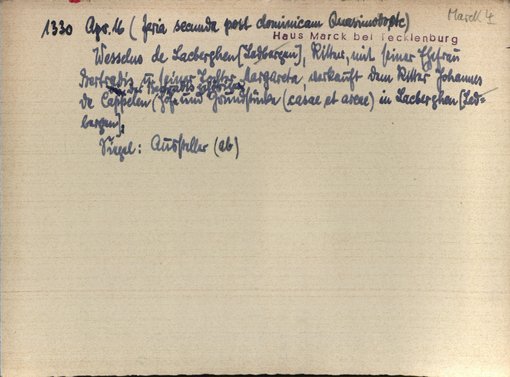 Marck 4
1330 Apr. 16 (feria secunda post dominicam Quasimodo etc)
Haus Marck bei Tecklenburg
Wesselus de Lacberghen [Ledbergen], Ritter, mit seiner Ehefrau
Bertradis u seiner Tochter Margareta, verkauft dem Ritter Johannes
de Cappelen Höfe und Grundstücke (casae et areae) in Lacberghen [Led-
bergen].
Siegel: Aussteller (ab)